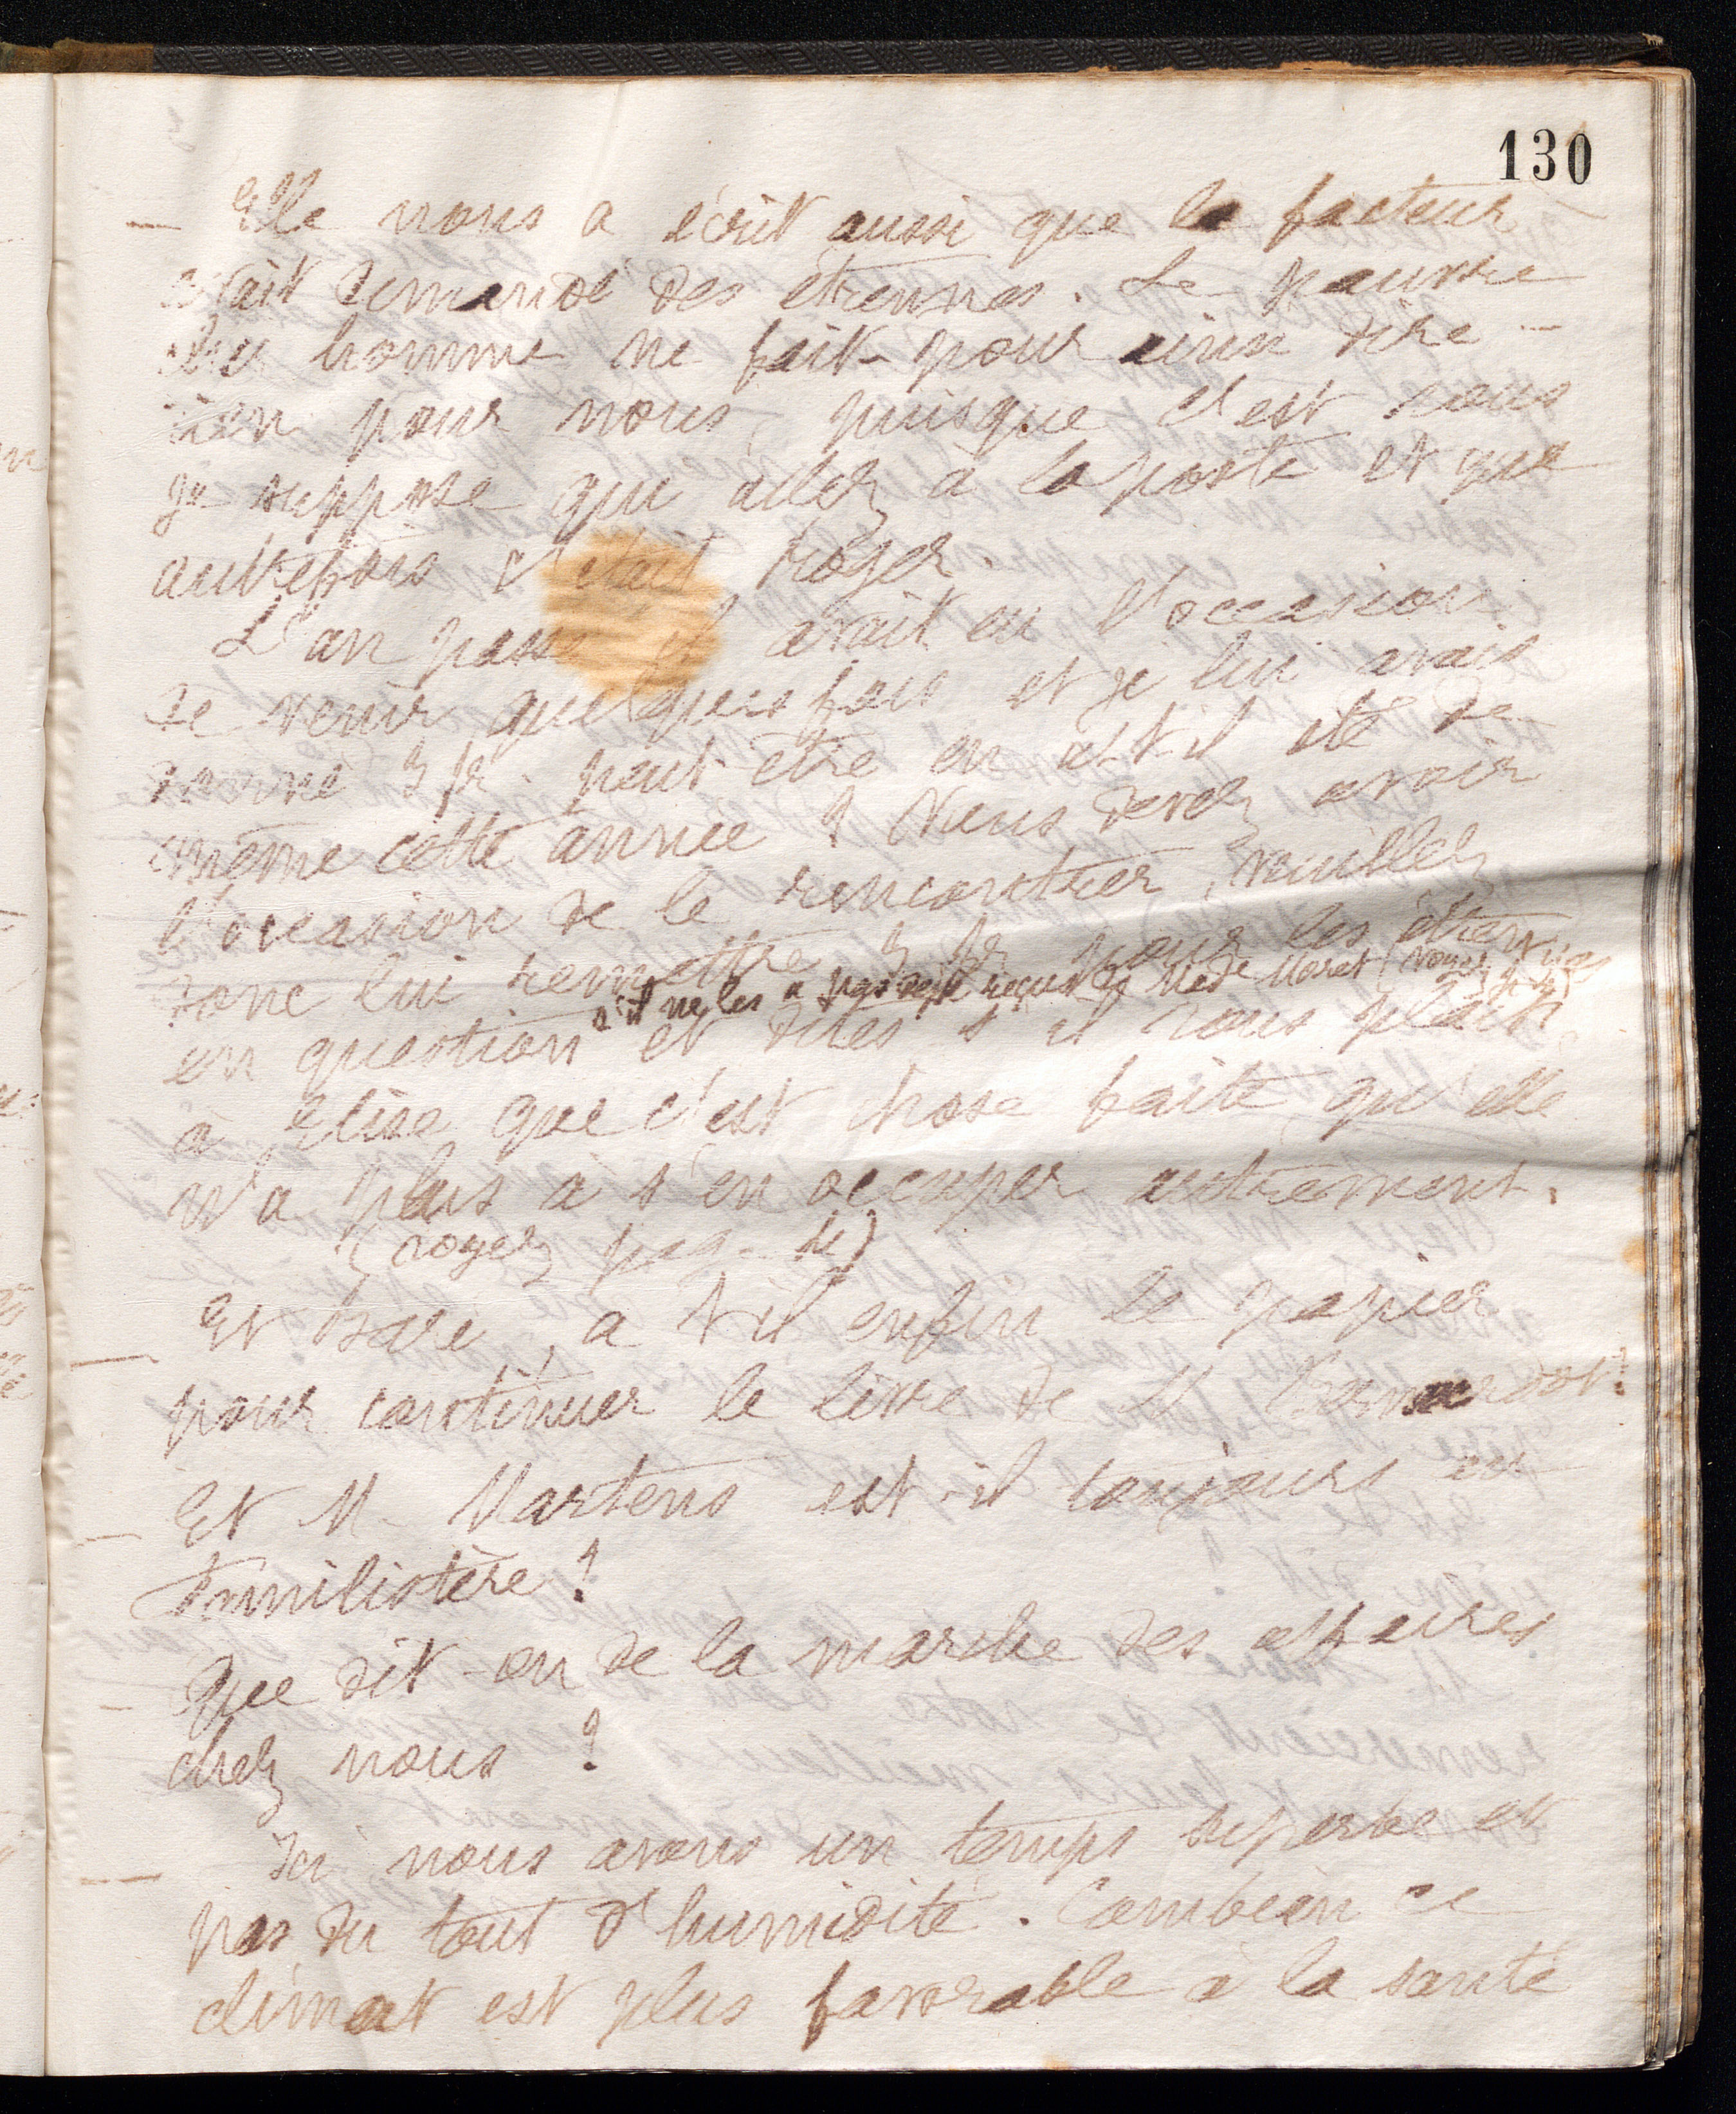 130
— Elle nous a écrit aussi que le facteur
avait demandé des étrennes. Le pauvre
cher homme ne fait pour ainsi dire
rien pour nous, puisque c'est vous
je suppose qui allez à la poste et que
autrefois c'était Roger.
L'an passé il avait eu l'occasion
de venir quelques fois et je lui avais
donné 3 fr. peut-être en a-t-il été de
même cette année ? Vous devez avoir
l'occasion de le rencontrer, veuillez
donc lui remettre 3 fr pour les étrennes
s'il ne les a pas déjà reçus de Mede Moret (voyez p. de)
en question et dites s'il vous plaît
à Elise que c'est chose faite qu'elle
n'a plus à s'en occuper autrement.
(voyez pag. de)
— Et Baré, a t'il enfin le papier
pour continuer le livre de M
— Et M. Martens est-il toujours au
Familistère ?
— Que dit-on de la marche des affaires
chez nous ?
— Ici nous avons un temps superbe et
pas du tout d'humidité. Combien ce
climat est plus favorable à la santé